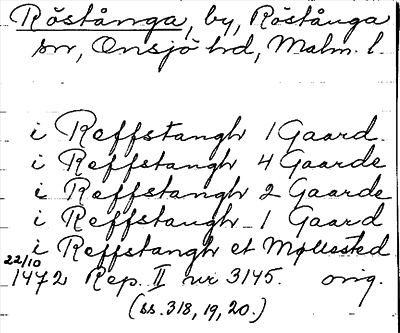 Röstånga, by, Röstånga
sn, Onsjö hd, Malm. l.
i Reffstangh 1 Gaard.
i Reffstangh 4 Gaarde
i Reffstangh 2 Gaarde
i Reffstangh 1 Gaard
i Reffstangh et Møllested
22/10
1472 Rep. II nr 3145. orig.
(ss. 318, 19, 20.)